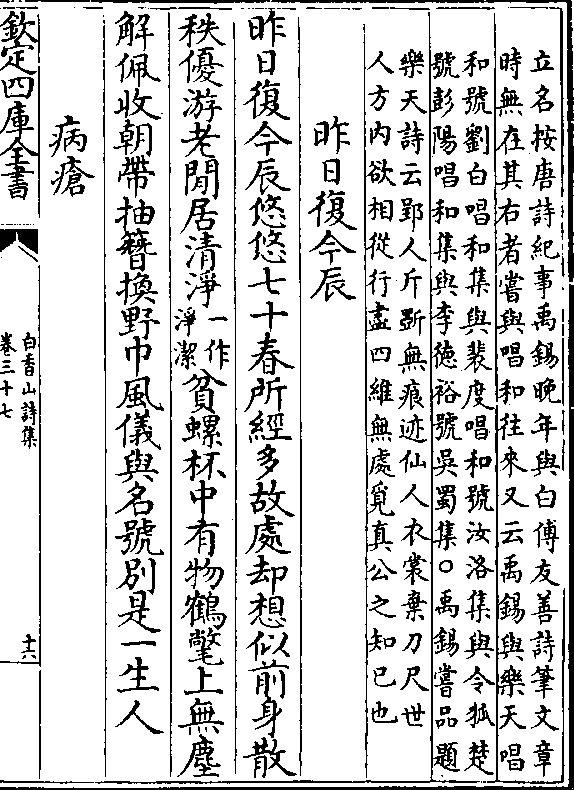 立名按唐詩紀事禹錫晚年與白傅友善詩筆文章
時無在其右者嘗與唱和往來又云禹錫與樂天唱
和號劉白唱和集與裴度唱和號汝洛集與令狐楚
號彭陽唱和集與李德裕號吳蜀集○禹錫嘗品題
樂天詩云郢人斤斲無痕迹仙人衣裳棄刀尺世
人方內欲相從行盡四維無處覓真公之知已也
昨日復今辰
昨日復今辰悠悠七十春所經多故處却想似前身散
秩優游老閒居清淨一作淨潔貧螺杯中有物鶴氅上無塵
解佩收朝帶抽簪換野巾風儀與名號別是一生人
病瘡
欽定四庫全書
白香山詩集
卷三十七
十六